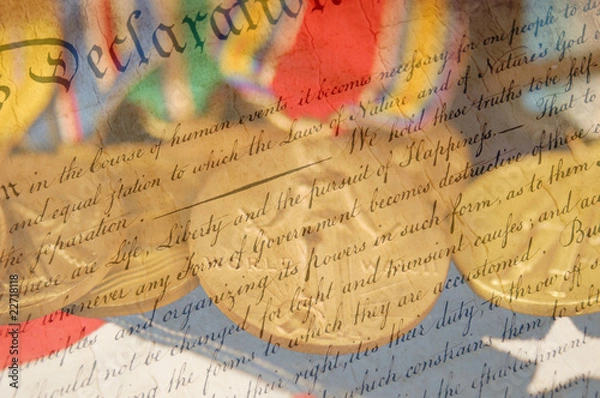 Declaration
n in the Course of human events, it becomes necessary for one people to di
and equal ſtation to which the Laws of Nature and of Nature's God e
the ſeparation. — We hold these truths to be ſelf-
these are Life, Liberty and the pursuit of Happineſs. — That to
whenever any Form of Government becomes destructive of these
inciples and organizing its powers in such form, as to them
ould not be changed for light and transient cauſes; and acc
the forms to which they are accustomed. Bu
their right, it is their duty, to throw off s
which constrains them to alt
the establishment
Adobe Stock | 22718118